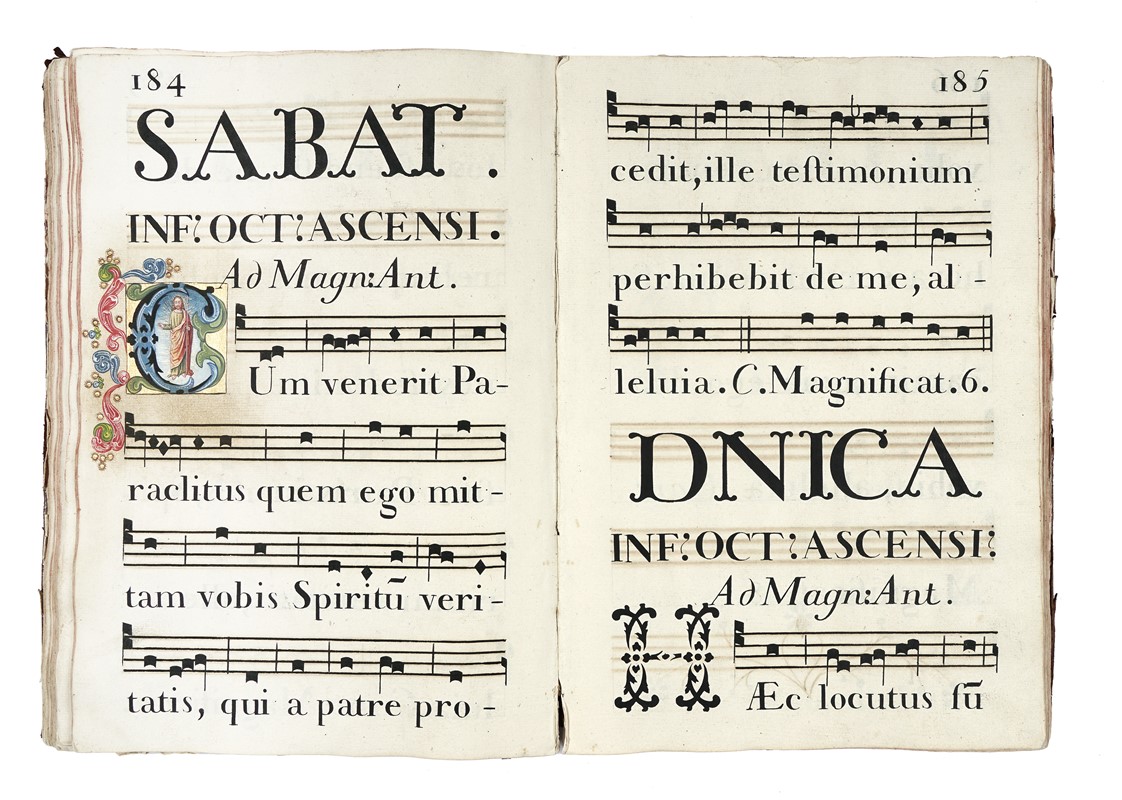 184
SABAT.
INF: OCT: ASCENSI.
Ad Magn: Ant.
CUm venerit Pa-
raclitus quem ego mit-
tam vobis Spiritū veri-
tatis, qui a patre pro-
185
cedit, ille teſtimonium
perhibebit de me, al-
leluia. C. Magnificat. 6.
DNICA
INF: OCT: ASCENSI:
Ad Magn: Ant.
HÆc locutus ſū